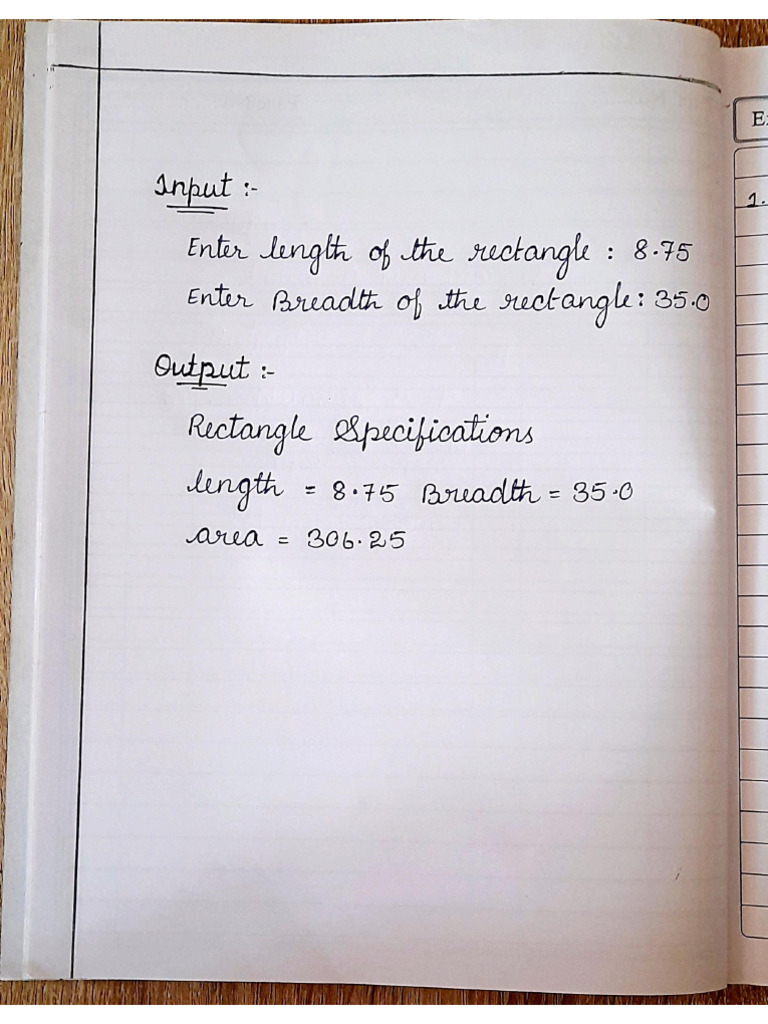 Input :-
Enter length of the rectangle : 8.75
Enter Breadth of the rectangle : 35.0
Output :-
Rectangle Specifications
length = 8.75 Breadth = 35.0
area = 306.25
1.